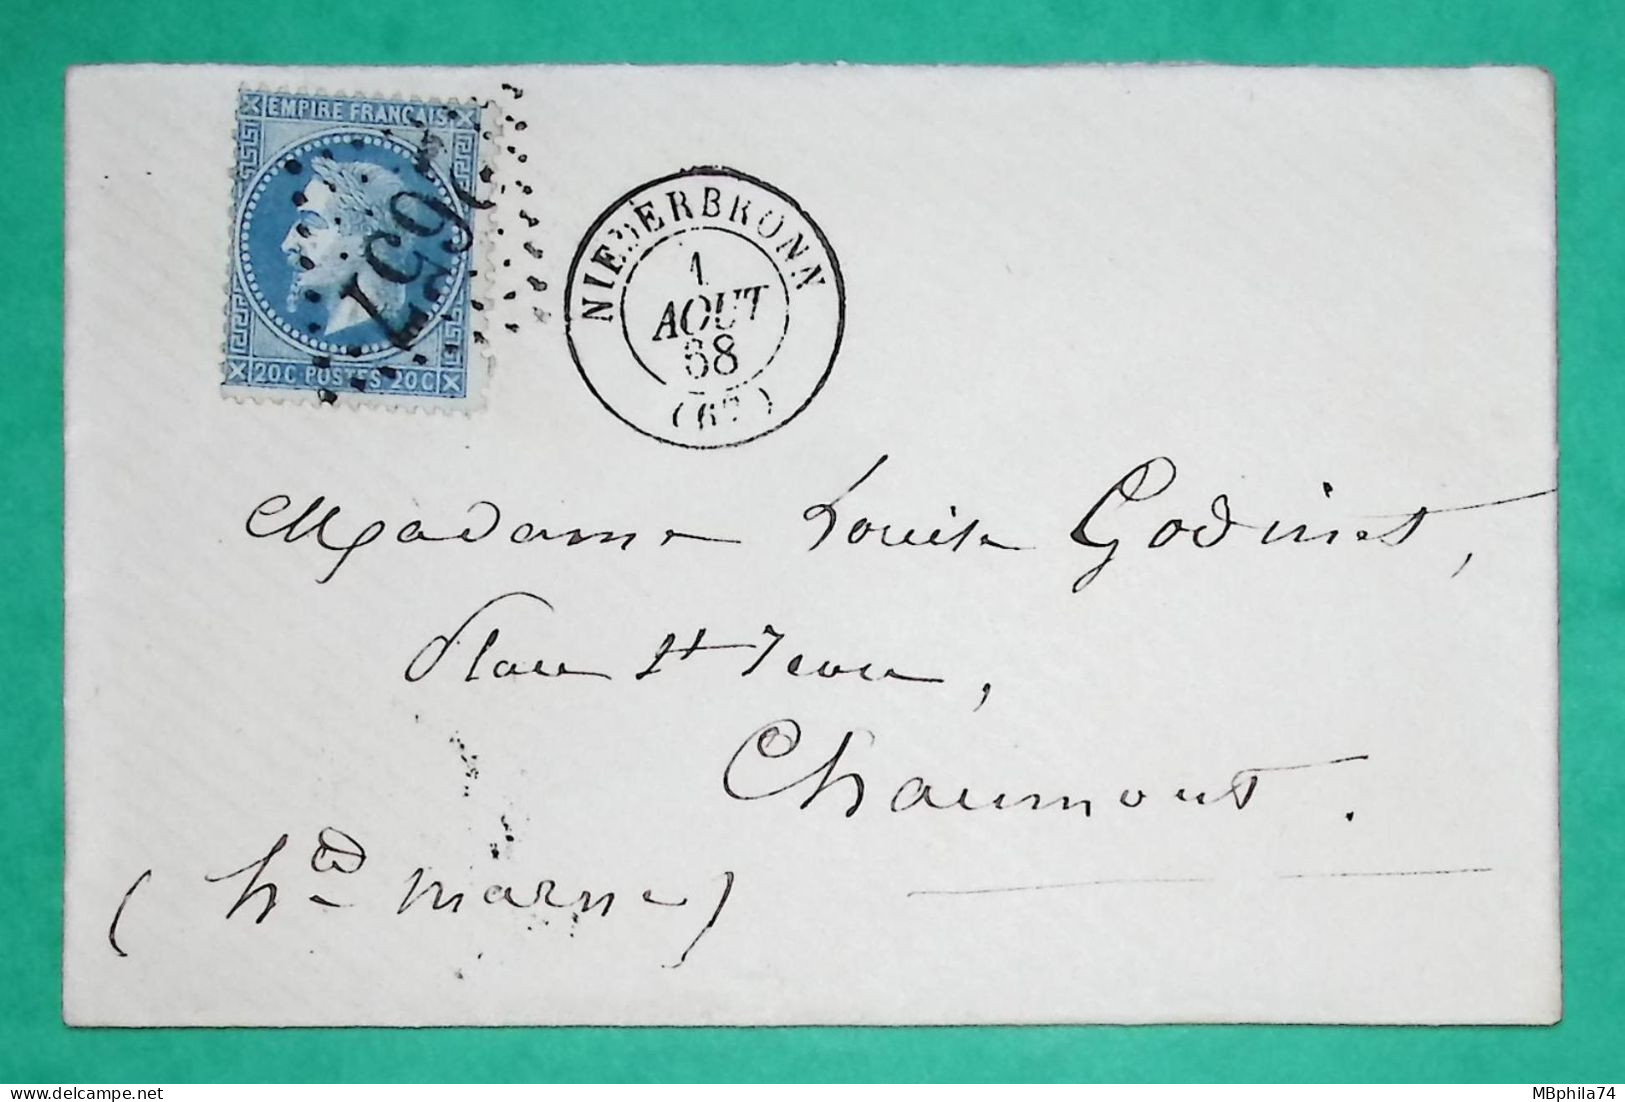 EMPIRE FRANÇAIS
2657
20C POSTES 20C
NIEDERBRONN
1
AOUT
68
(67)
Madame Louise Godinet,
Place St Jean,
Chaumont.
(hte marne)
MBphila74